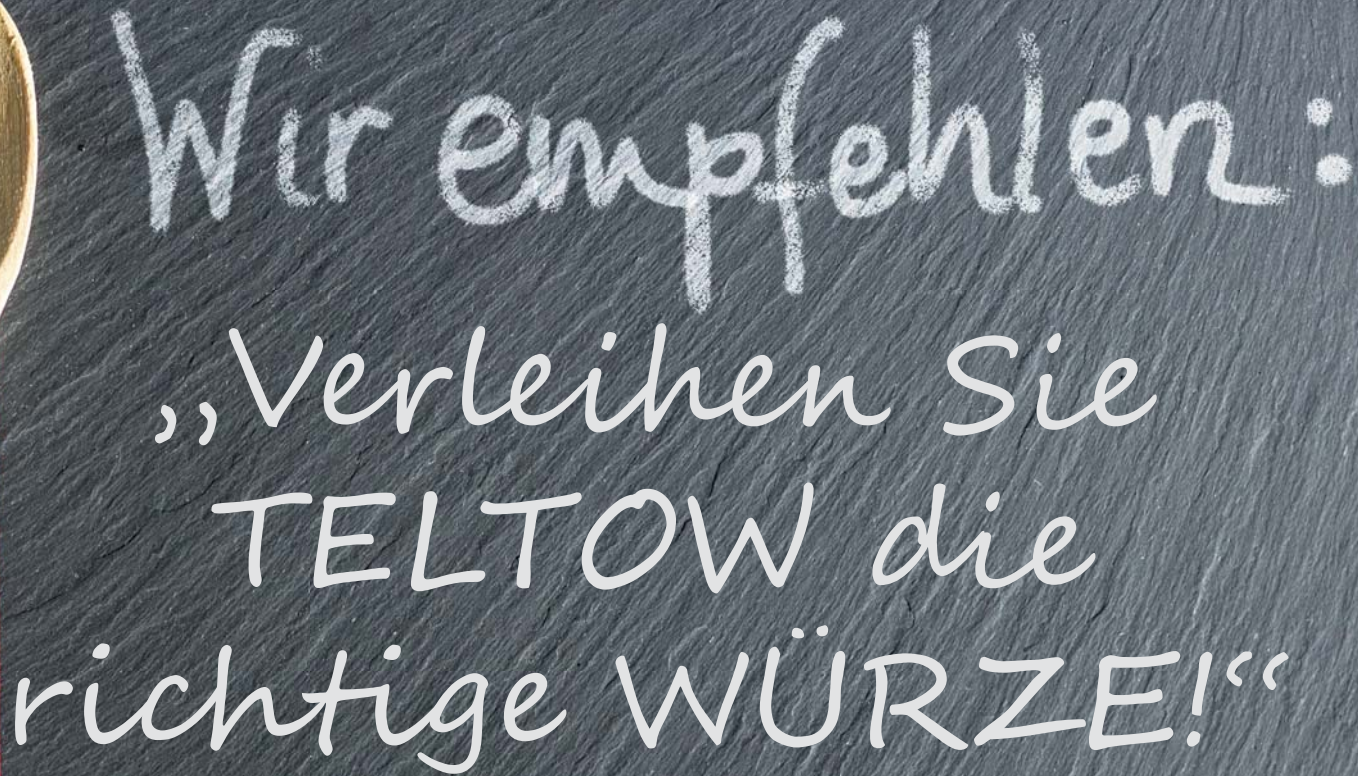 Wir empfehlen:
„Verleihen Sie
TELTOW die
richtige WÜRZE!“